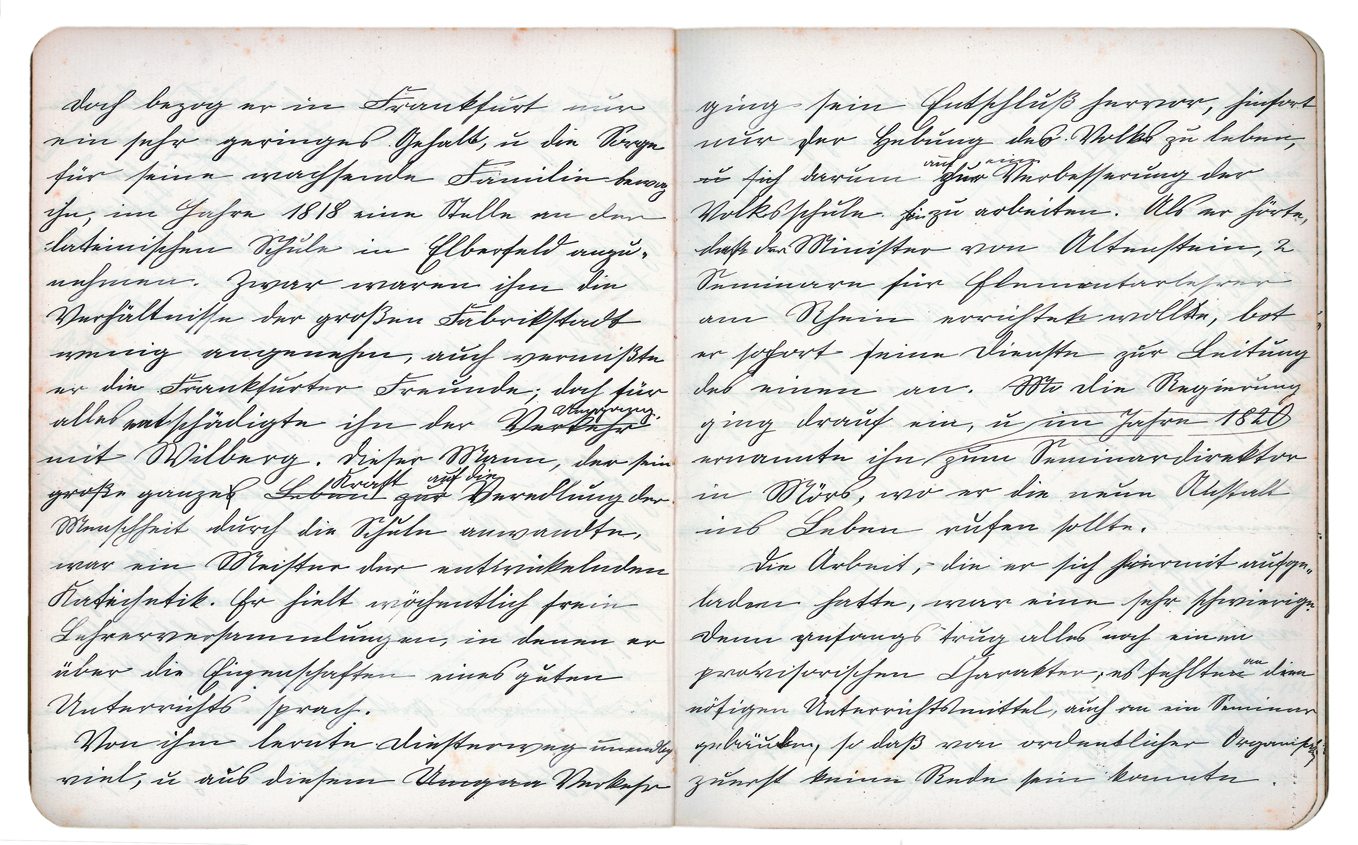 Doch bezog er in Frankfurt nur
ein sehr geringes Gehalt, u die Sorge
für seine wachsende Familie bewog
ihn, im Jahre 1818 eine Stelle an der
lateinischen Schule in Elberfeld anzu-
nehmen. Zwar waren ihm die
Verhältnisse der großen Fabrikstadt
wenig angenehm, auch vermißte
er die Frankfurter Freunde; doch für
alles entschädigte ihn der Verkehr Umgang
mit Wilberg. Dieser Mann, der sein
große ganzes Leben Kraft zur auf die Veredlung der
Menschheit durch die Schule anwandte,
war ein Meister der entwickelnden
Katechetik. Er hielt wöchentlich freie
Lehrerversammlungen, in denen er
über die Eigenschaften eines guten
Unterrichts sprach.
Von ihm lernte Diesterweg unendlich
viel, u aus diesem Umgan Verkehr
ging sein Entschluß hervor, hinfort
nur der Hebung des Volks zu leben,
u sich darum zur auf eine Verbesserung der
Volksschule hin zu arbeiten. Als er hörte,
daß der Minister von Altenstein, 2
Seminare für Elementarlehrer
am Rhein errichten wollte, bot
er sofort seine Dienste zur Leitung
des einen an. Die Regierung
ging drauf ein, u im Jahre 1820
ernannte ihn zum Seminardirektor
in Mörs, wo er die neue Anstalt
ins Leben rufen sollte.
Die Arbeit, die er sich hiermit aufge-
laden hatte, war eine sehr schwierige.
Denn anfangs trug alles noch einen
provisorischen Charakter, es fehlte an den
nötigen Unterrichtsmittel, auch an ein Seminar
gebäude, so daß von ordentlicher
zuerst keine Rede sein konnte.